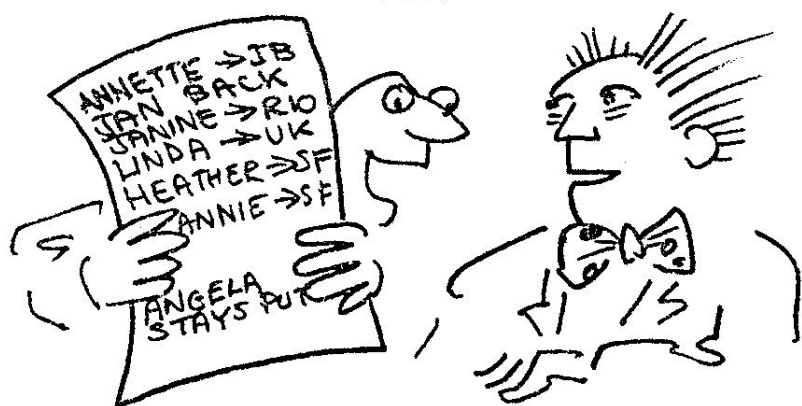 ANNETTE → JB
JAN BACK
JANINE → RIO
LINDA → UK
HEATHER → SF
ANNIE → SF
ANGELA
STAYS PUT